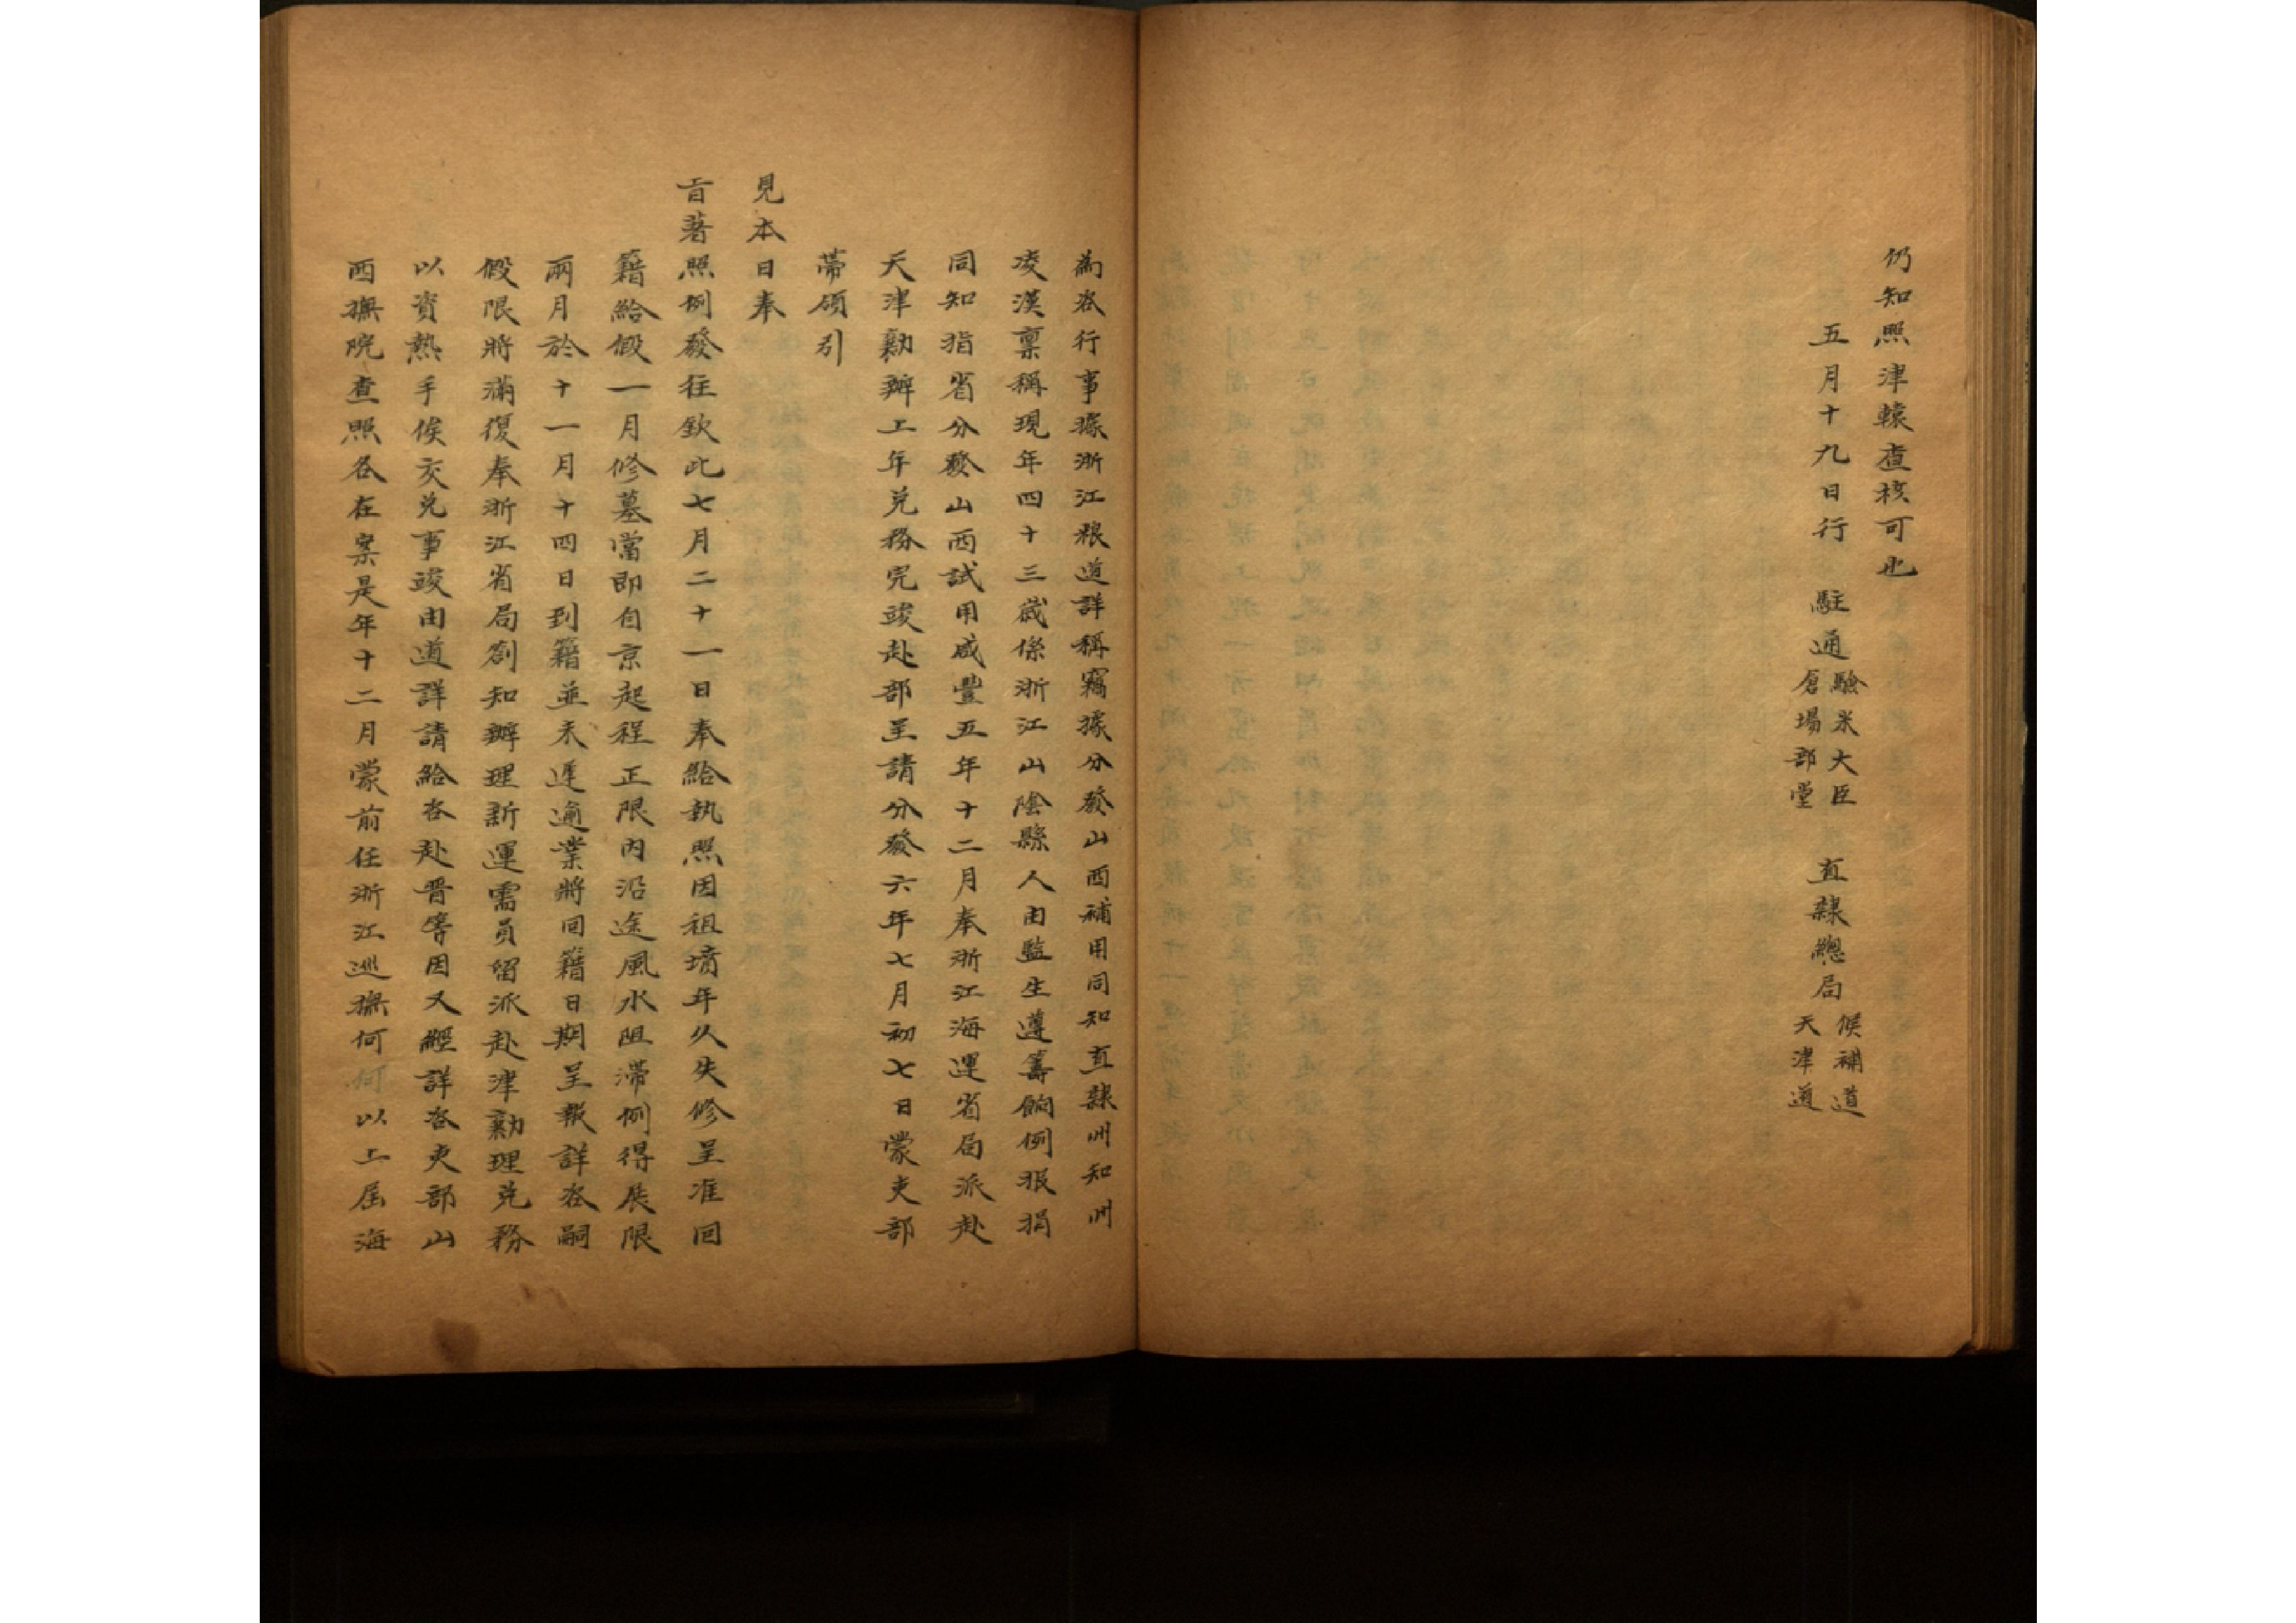 仍知照津轅查核可也
五月十九日行 駐通 驗米大臣 倉場部堂 直隸總局 候補道 天津道
為咨行事據浙江糧道詳稱竊據分發山西補用同知直隸州知州
凌漢稟稱現年四十三歲係浙江山陰縣人由監生遵籌餉例報捐
同知指省分發山西試用咸豐五年十二月奉浙江海運省局派赴
天津勷辦上年兌務完竣赴部呈請分發六年七月初七日蒙吏部
帶領引
見本日奉
旨著照例發往欽此七月二十一日奉給執照因祖墳年久失修呈准回
籍給假一月修墓當即自京起程正限內沿途風水阻滯例得展限
兩月於十一月十四日到籍並未遲逾業將回籍日期呈報詳咨嗣
假限將滿復奉浙江省局劄知辦理新運需員留派赴津勷理兌務
以資熟手俟交兌事竣由道詳請給咨赴晉等因又經詳咨吏部山
西撫院查照各在案是年十二月蒙前任浙江巡撫何何以上屆海